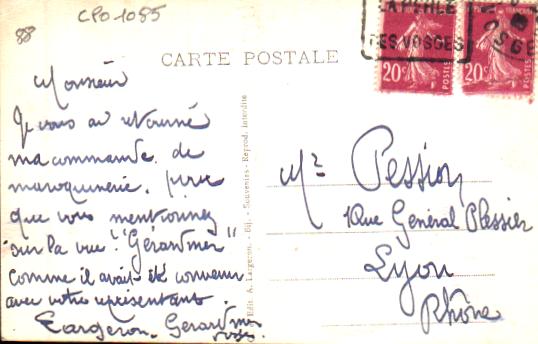 CPO 1085
88
CARTE POSTALE
LA PERLE
DES VOSGES
VOSGES
20c POSTES
20c POSTES
Monsieur
Je vous ai retourné
ma commande de
maroquinerie. pour
que vous mentionnez
sur la vue "Gérardmer"
comme il avait été convenu
avec votre représentant.
Largeron. Gérardmer
Vosges
Edit. A. Largeron. - Bij. - Souvenirs - Reprod. Interdite
Mr Pession
1 Rue Général Plessier
Lyon
Rhône